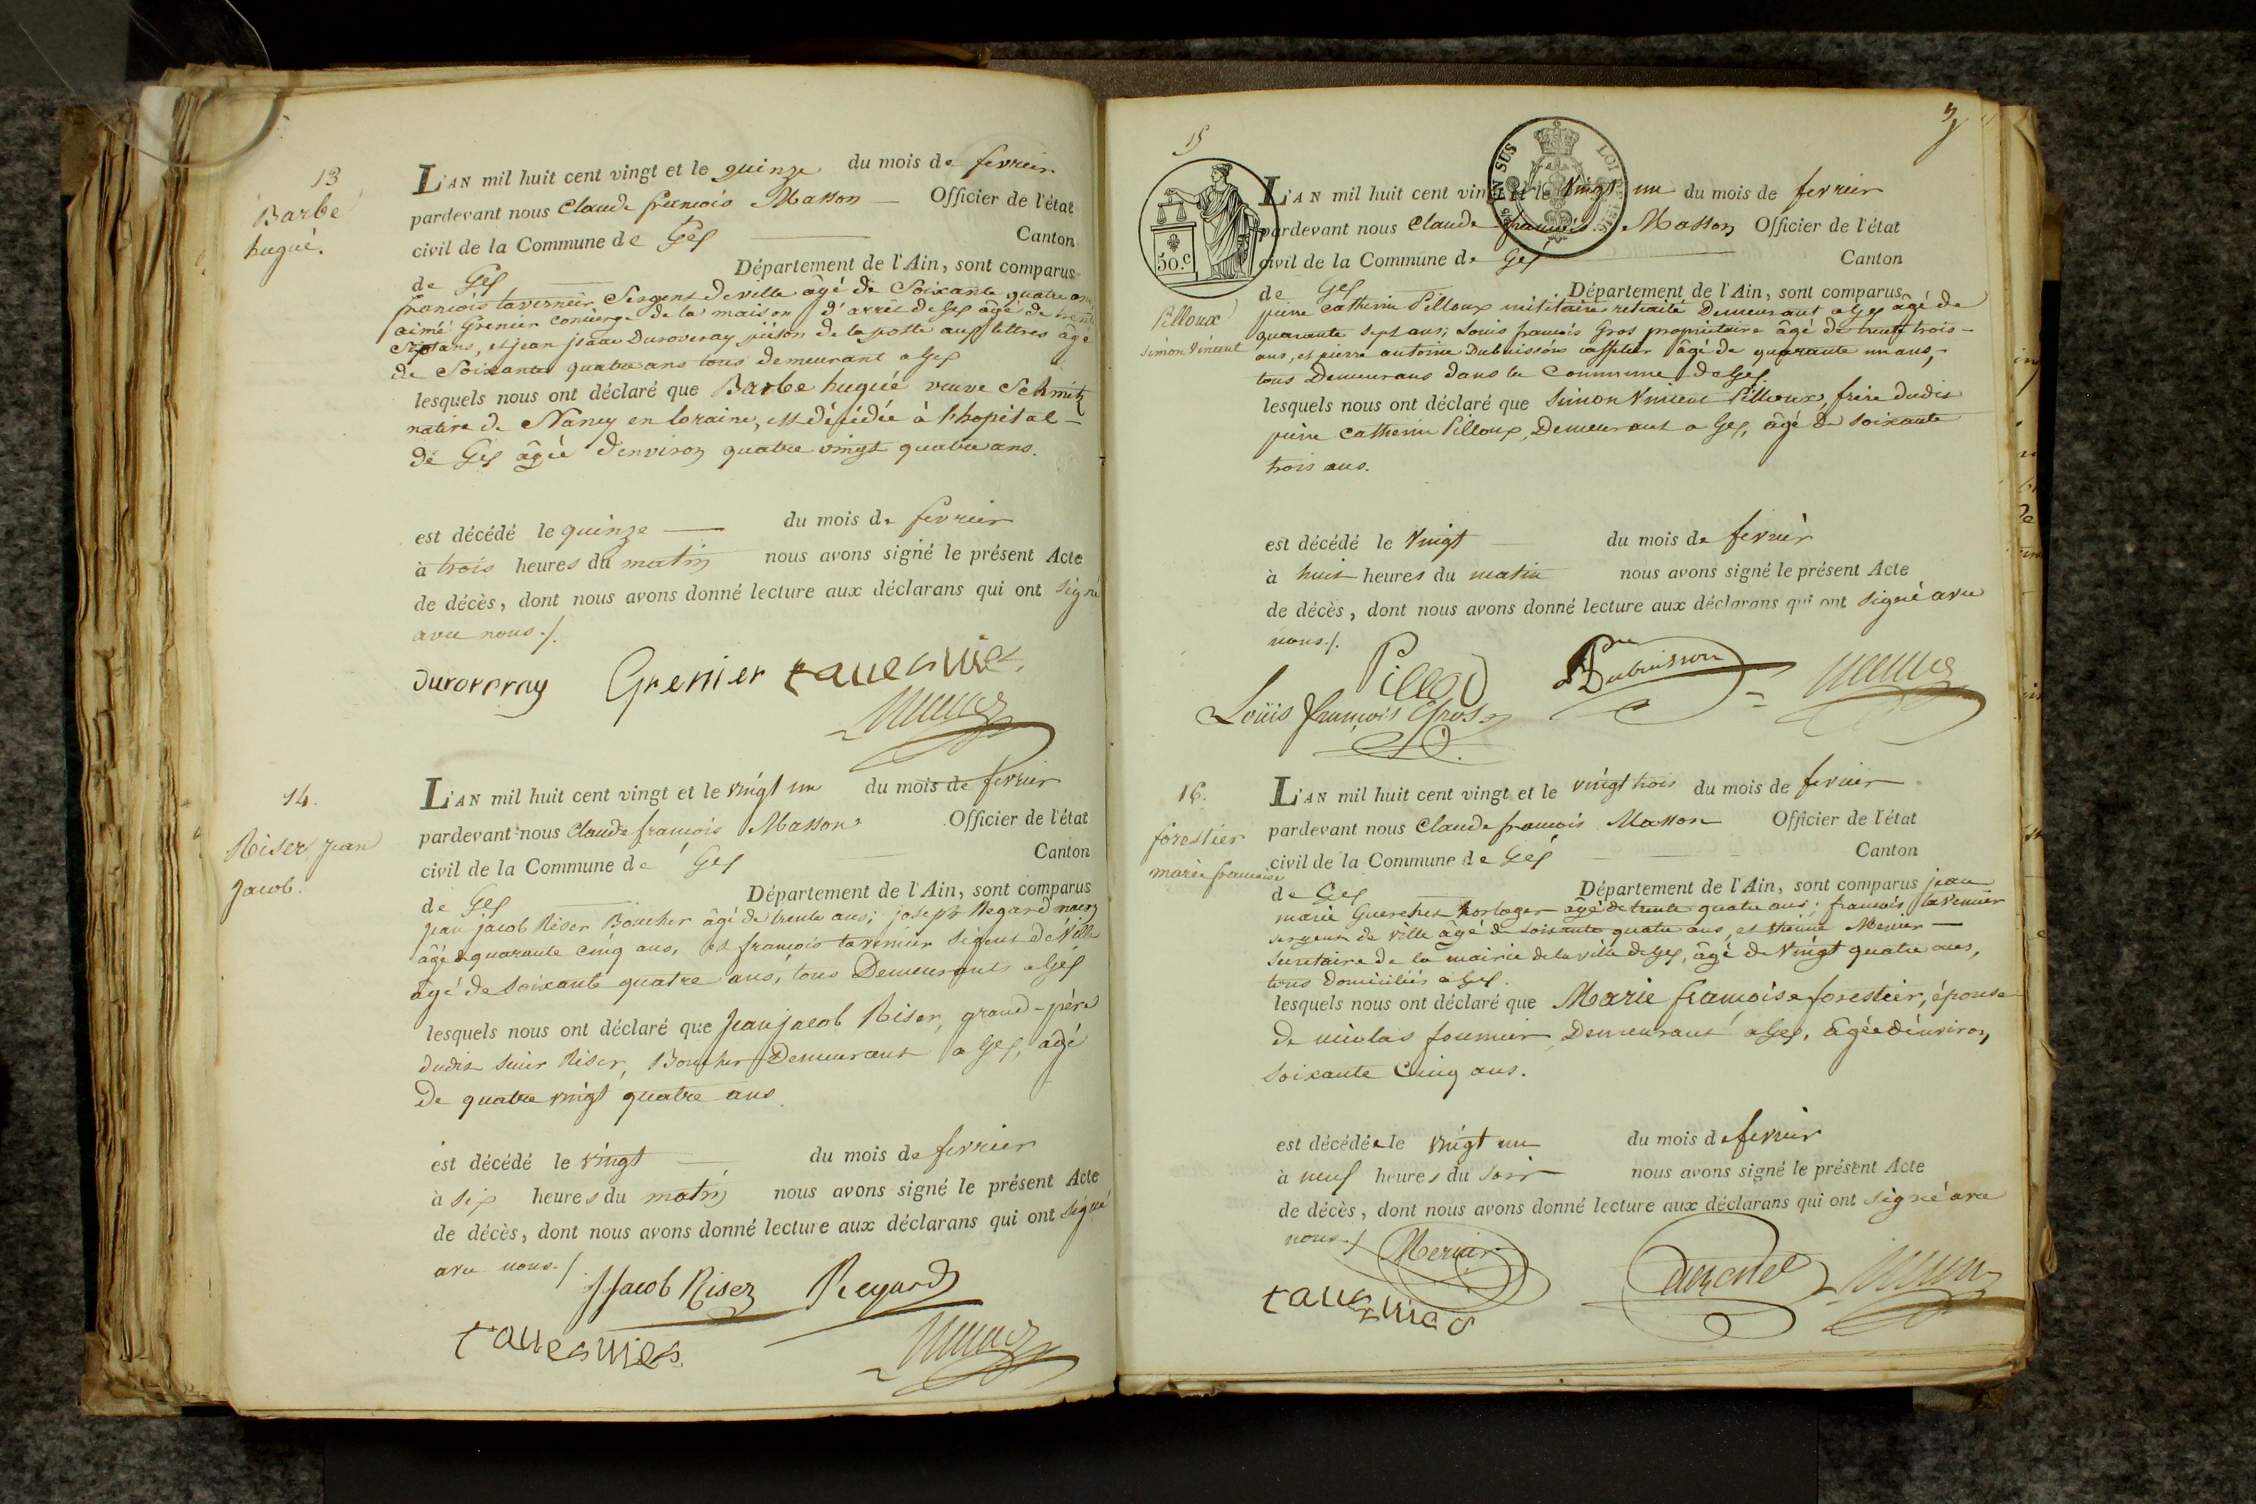 13
Barbe
hugué.
L'AN mil huit cent vingt et le quinze du mois de fevrier
pardevant nous Claude francois Masson — Officier de l'état
civil de la Commune de Gex — Canton
de Gex Département de l'Ain, sont comparus
francois tavernier Sergent de ville âgé de Soixante quatre ans
aimé Grenier concierge de la maison d'arrêt de Gex âgé de trente
sept ans, et jean isaac Duroveray piéton de la poste aux lettres âgé
de Soixante quatre ans tous demeurant a Gex
lesquels nous ont déclaré que Barbe hugué veuve Schmitz
native de Nancy en loraine, est décédée à l'hopital —
de Gex âgée d'environ quatre vingt quatre ans.
est décédé le quinze — du mois de fevrier
à trois heures du matin nous avons signé le présent Acte
de décès, dont nous avons donné lecture aux déclarans qui ont signé
avec nous ./.
duroveray Grenier tavernier
14.
Riser jean
Jacob.
L'AN mil huit cent vingt et le vingt un du mois de fevrier
pardevant nous Claude francois Masson Officier de l'état
civil de la Commune de Gex Canton
de Gex Département de l'Ain, sont comparus
jean jacob Riser Boucher âgé de trente ans; joseph Regard
âgé de quarante cinq ans, et francois tavernier sergent de Ville
âgé de soixante quatre ans, tous Demeurants a Gex
lesquels nous ont déclaré que Jean jacob Riser, grand-père
dudit sieur Riser, Boucher Demeurant a Gex, âgé
De quatre vingt quatre ans.
est décédé le vingt — du mois de fevrier
à six heures du matin nous avons signé le présent Acte
de décès, dont nous avons donné lecture aux déclarans qui ont signé
avec nous ./.
J Jacob Riser Regard
tavernier
15
50.c
EN SUS
LOI
Pilloux
Simon Vincent
L'AN mil huit cent vingt et le vingt un du mois de fevrier
pardevant nous Claude francois Masson Officier de l'état
civil de la Commune de Gex Canton
de Gex Département de l'Ain, sont comparus
pierre catherin Pilloux militaire retraité Demeurant a Gex âgé de
quarante sept ans; Louis francois Gros propriétaire âgé de trente trois —
ans, et pierre antoine Dubuisson âgé de quarante un ans, —
tous Demeurans dans la Commune de Gex
lesquels nous ont déclaré que Simon Vincent Pilloux, frère dudit
pierre Catherin Pilloux, Demeurant a Gex, âgé de soixante
trois ans.
est décédé le Vingt — du mois de fevrier
à huit heures du matin nous avons signé le présent Acte
de décès, dont nous avons donné lecture aux déclarans qui ont signé avec
nous ./.
Pilloux Dubuisson
Loüis françois Gros
16.
forestier
marie francoise
L'AN mil huit cent vingt et le vingt trois du mois de fevrier
pardevant nous Claude francois Masson Officier de l'état
civil de la Commune de Gex — Canton
de Gex — Département de l'Ain, sont comparus jean
marie Guerchet horloger âgé de trente quatre ans; francois tavernier
sergent de ville âgé de soixante quatre ans, et etienne Mercier —
Secretaire de la mairie de la ville de Gex, âgé de Vingt quatre ans,
tous domiciliés a Gex.
lesquels nous ont déclaré que Marie françoise forestier, épouse
de nicolas fournier, Demeurant a Gex, âgée d'environ
soixante Cinq ans.
est décédée le vingt un du mois de fevrier
à neuf heures du soir nous avons signé le présent Acte
de décès, dont nous avons donné lecture aux déclarans qui ont signé avec
nous ./. Mercier
tavernier